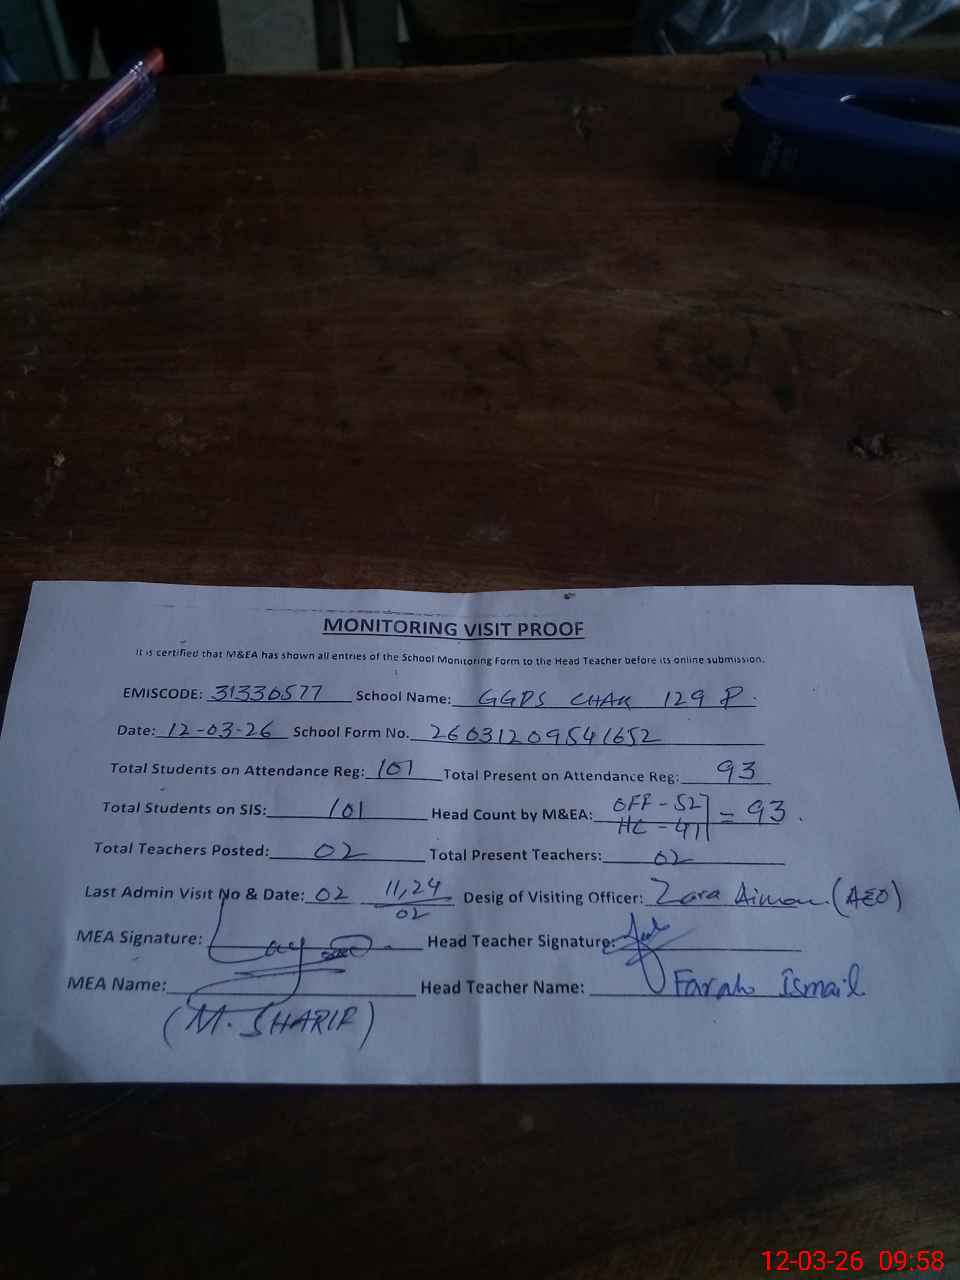 MONITORING VISIT PROOF
It is certified that M&EA has shown all entries of the School Monitoring Form to the Head Teacher before its online submission.
EMISCODE: 31330577 School Name: GGPS CHAK 129 P.
Date: 12-03-26 School Form No. 26031209541652
Total Students on Attendance Reg: 101 Total Present on Attendance Reg: 93
Total Students on SIS: 101 Head Count by M&EA: OFF - 52 HC - 41 = 93.
Total Teachers Posted: 02 Total Present Teachers: 02
Last Admin Visit No & Date: 02 11,24/02 Desig of Visiting Officer: Zara Aiman (AEO)
MEA Signature: Head Teacher Signature:
MEA Name: Head Teacher Name: Farah Ismail
(M. SHARIF)
12-03-26 09:58